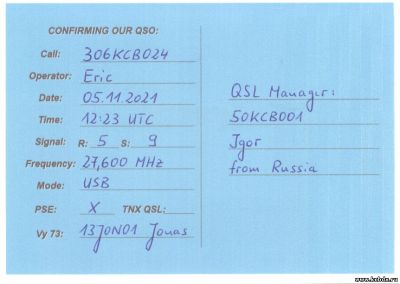 CONFIRMING OUR QSO:
Call: 306KCB024
Operator: Eric
Date: 05.11.2021
Time: 12:23 UTC
Signal: R: 5 S: 9
Frequency: 27,600 MHz
Mode: USB
PSE: X TNX QSL:
Vy 73: 13JON01 Jonas
QSL Manager:
50KCB001
Igor
from Russia
www.kcbdx.ru